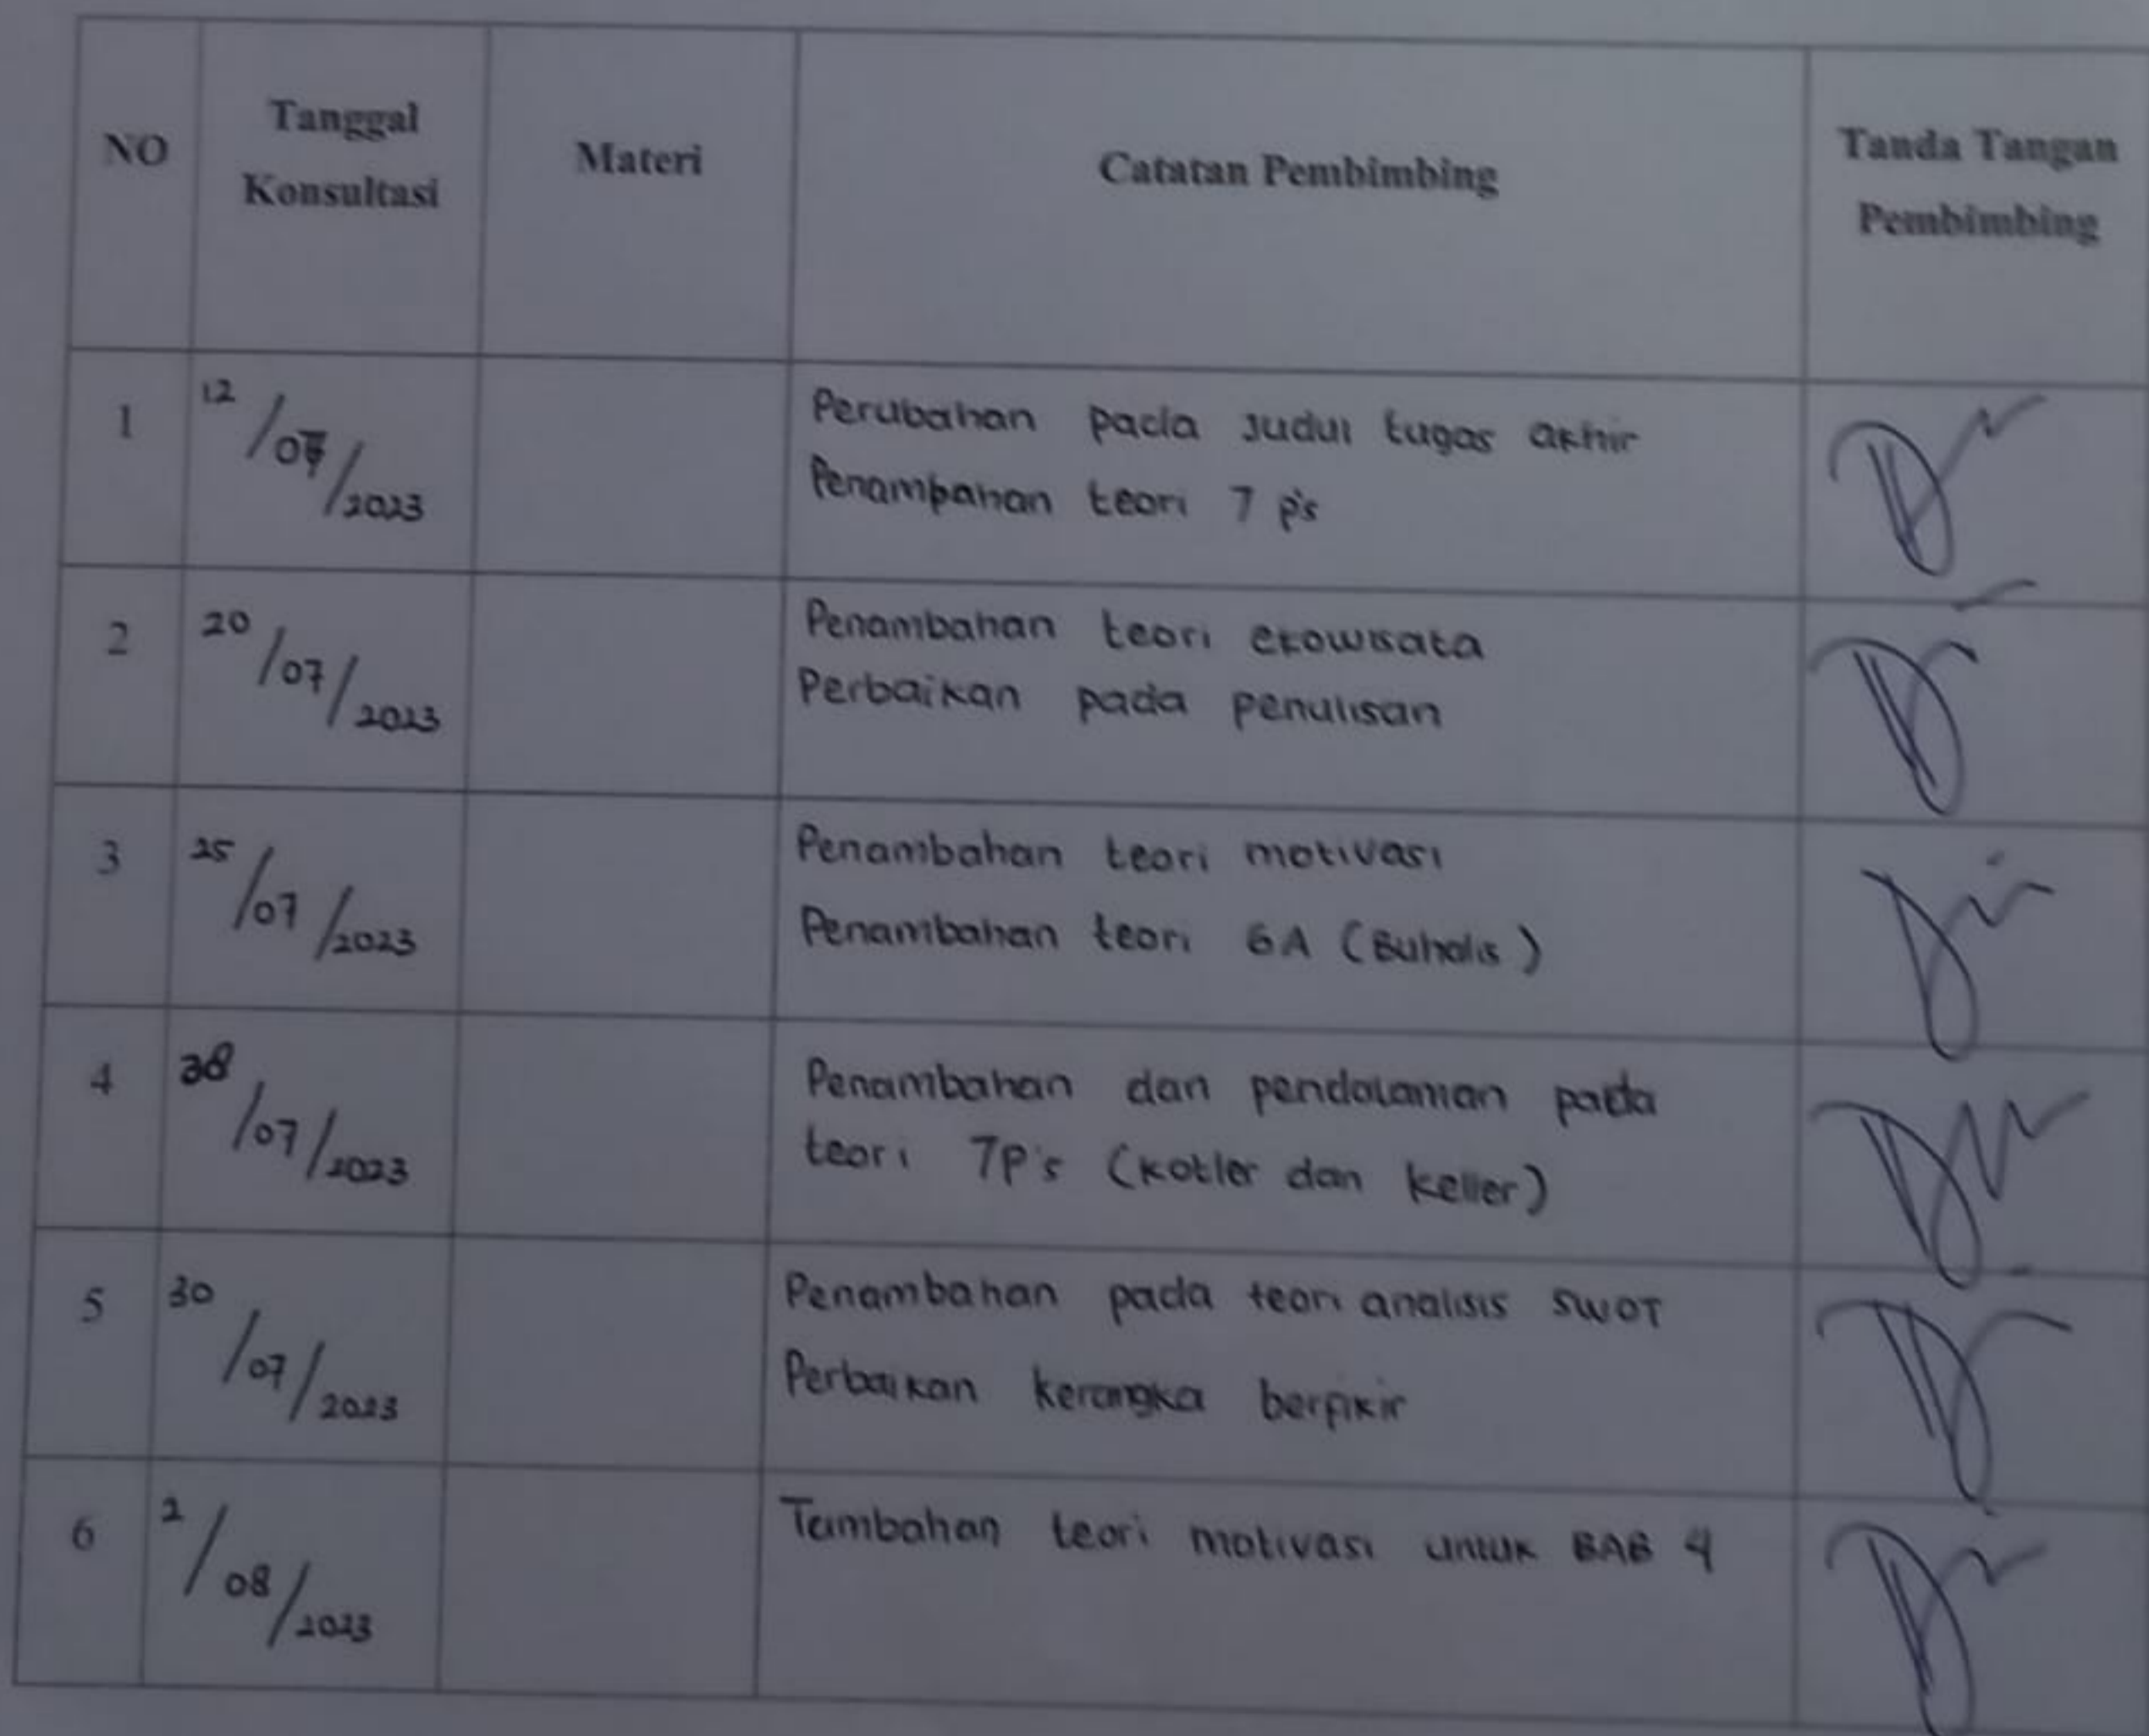 NO Tanggal Konsultasi Materi Catatan Pembimbing Tanda Tangan Pembimbing
1 12/07/2023 Perubahan pada Judul tugas akhir
Penambahan teori 7 p's
2 20/07/2023 Penambahan teori ekowisata
Perbaikan pada penulisan
3 25/07/2023 Penambahan teori motivasi
Penambahan teori 6A (Buhalis)
4 28/07/2023 Penambahan dan pendalaman pada
teori 7P's (Kotler dan Keller)
5 30/07/2023 Penambahan pada teori analisis SWOT
Perbaikan kerangka berpikir
6 2/08/2023 Tambahan teori motivasi untuk BAB 4